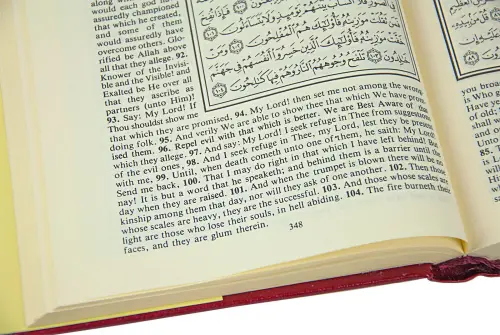 would each god have
assuredly championed
that which he created,
and some of them
would assuredly have
overcome others. Glo-
rified be Allah above
all that they allege. 92.
Knower of the Invisi-
ble and the Visible! and
Exalted be He over all
that they ascribe as
partners (unto Him)!
93. Say: My Lord! If
Thou shouldst show me
الصور فلا أنساب بينهم يومئذ ولا يتساءلون
فمن ثقلت موازينه فأولئك هم المفلحون ومن
خفت موازينه فأولئك الذين خسروا أنفسهم في جهنم
خالدون تلفح وجوههم النار وهم فيها كالحون
that which they are promised, 94. My Lord! then set me not among the wrong-
doing folk. 95. And verily We are able to show thee that which We have prom-
ised them. 96. Repel evil with that which is better. We are Best Aware of that
which they allege. 97. And say: My Lord! I seek refuge in Thee from suggestions
of the evil ones, 98. And I seek refuge in Thee, my Lord, lest they be present
with me, 99. Until, when death cometh unto one of them, he saith: My Lord!
Send me back, 100. That I may do right in that which I have left behind! But
nay! It is but a word that he speaketh; and behind them is a barrier until the
day when they are raised. 101. And when the trumpet is blown there will be no
kinship among them that day, nor will they ask of one another. 102. Then those
whose scales are heavy, they are the successful. 103. And those whose scales are
light are those who lose their souls, in hell abiding. 104. The fire burneth their
faces, and they are glum therein.
348